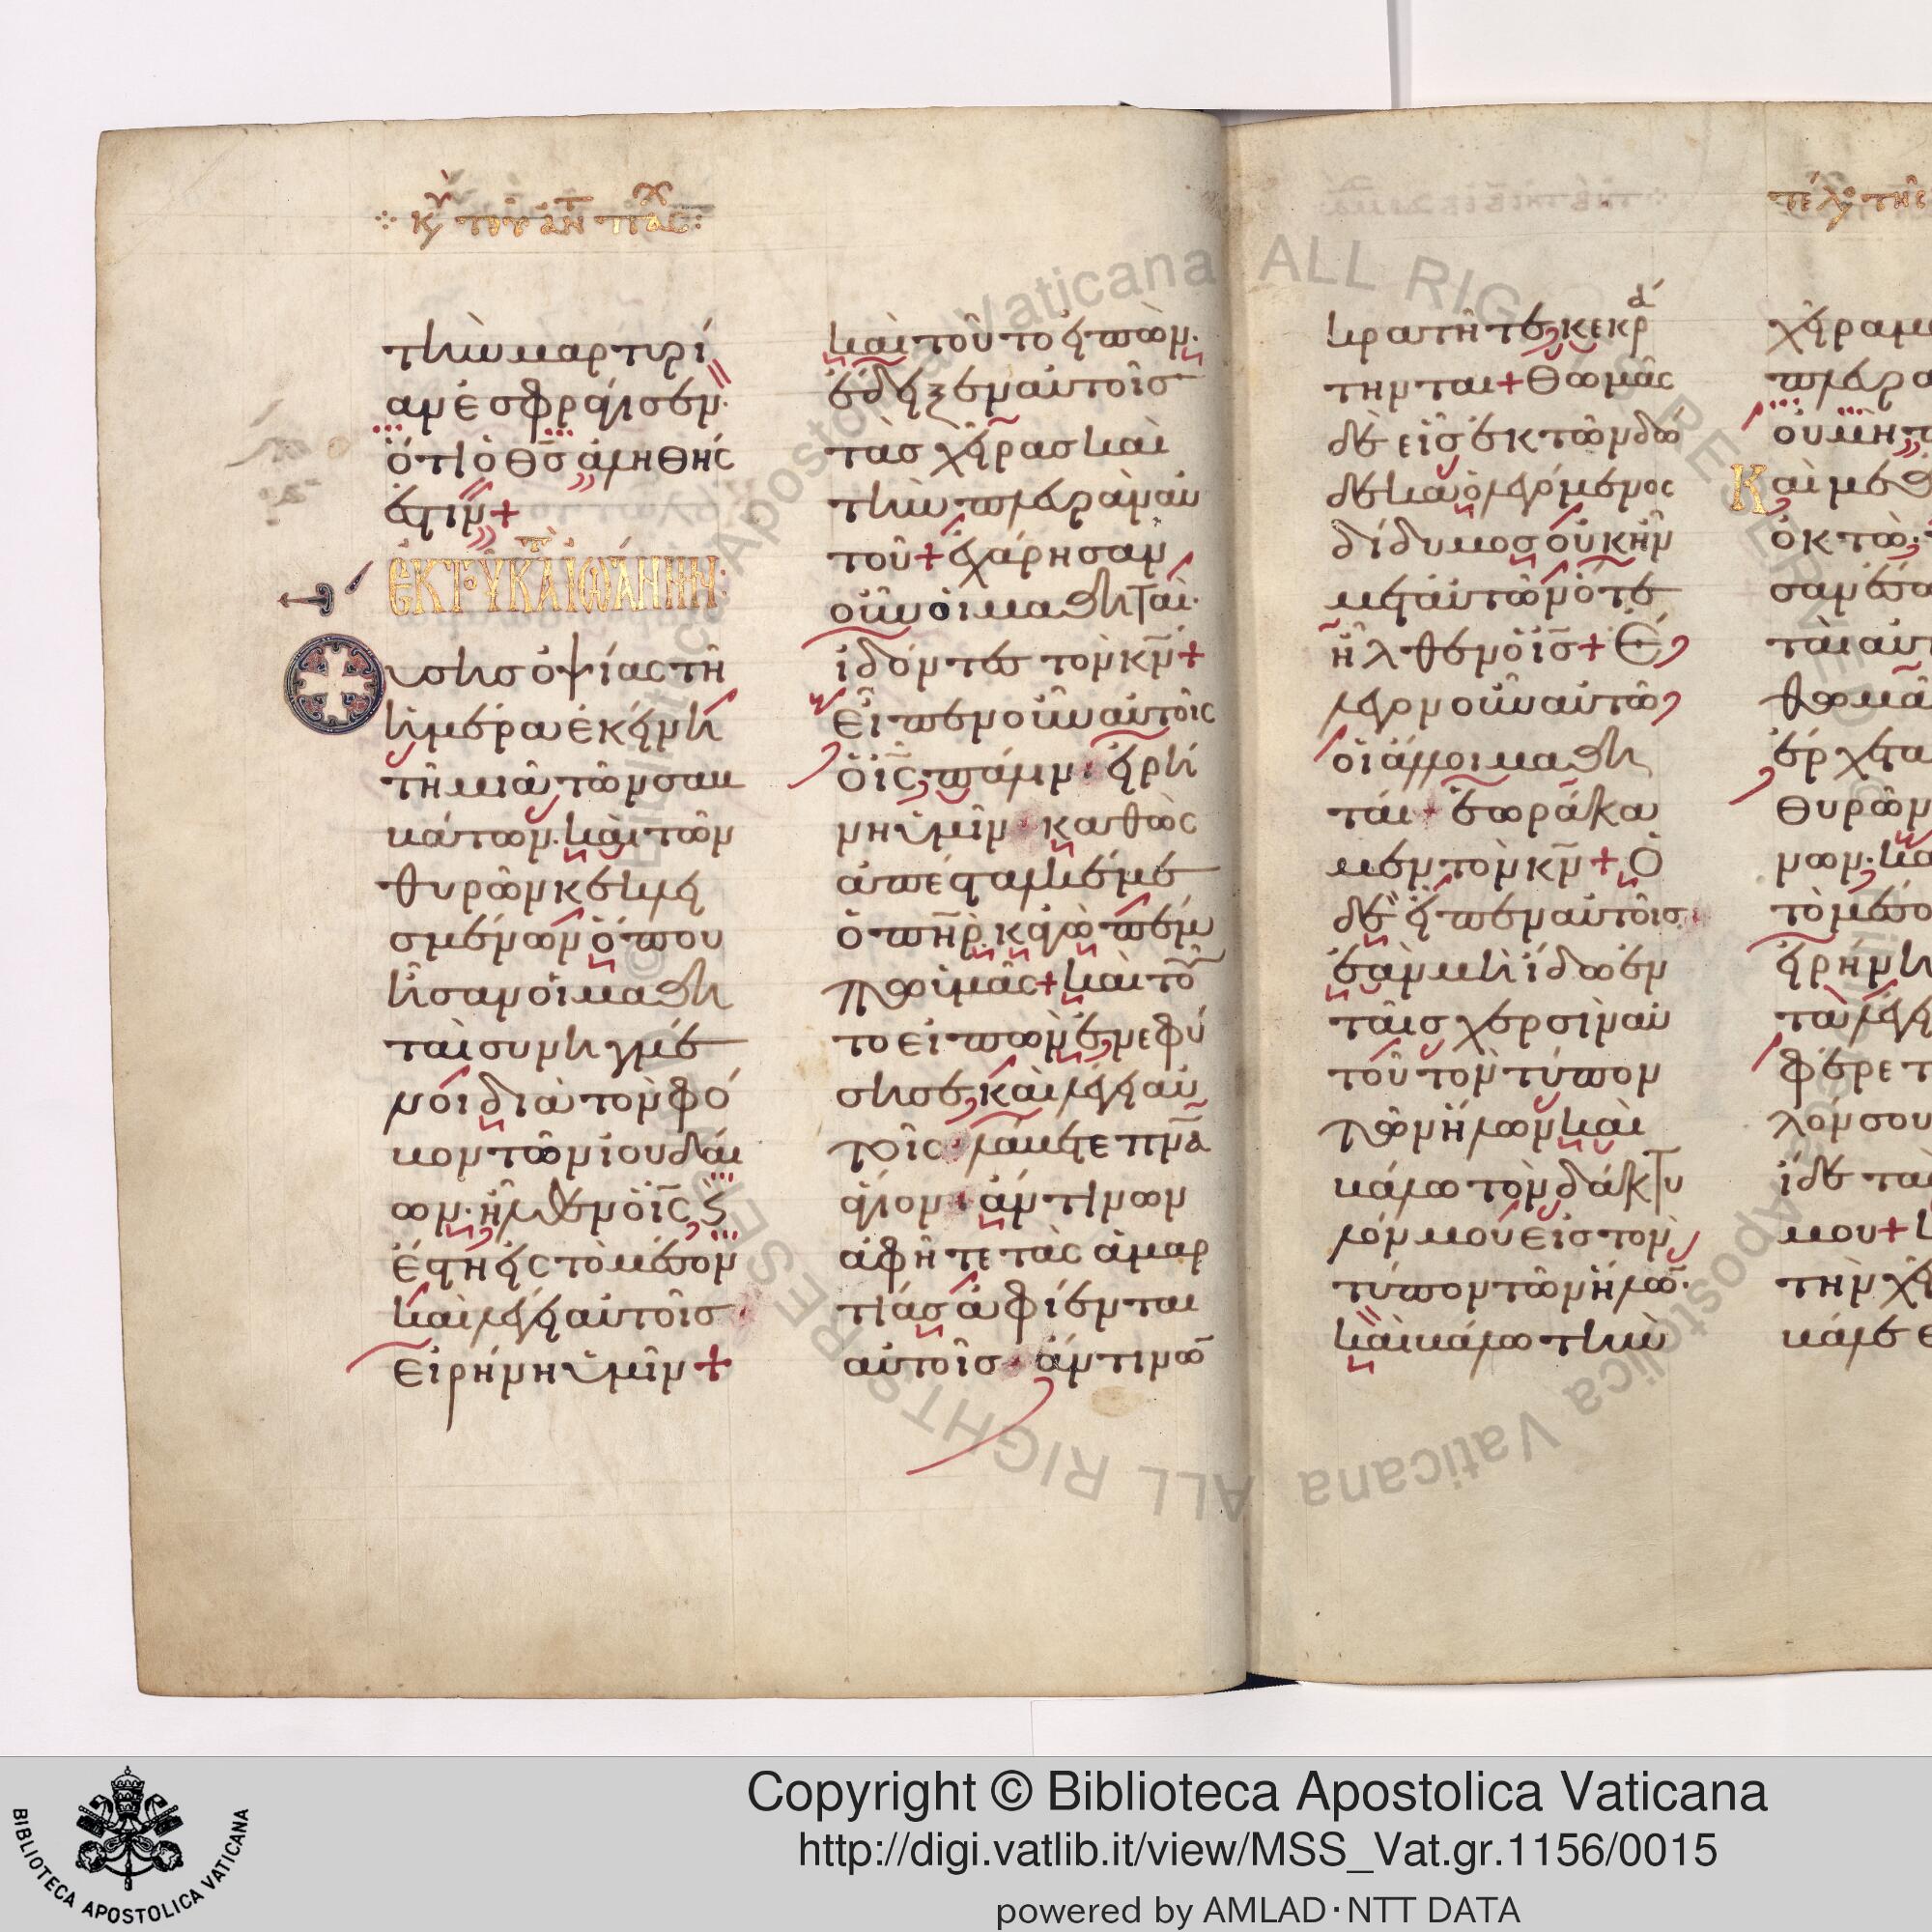 Κυ του αντπασχ
τὴν μαρτυρί
αν ἐσφράγισεν·
ὅτι ὁ θς ἀληθής
ἐστιν +
ἐκ τοῦ κατὰ ἰωάννην:
Ουσης ὀψίας τῆ
ἡμέρα ἐκείνη
τῆ μιᾶ τῶν σαβ
βάτων. καὶ τῶν
θυρῶν κεκλει
σμένων ὅπου
ἦσαν οἱ μαθη
ταὶ συνηγμέ
νοι διὰ τὸν φό
βον τῶν ἰουδαί
ων. ἦλθεν ὁ ις ϗ
ἔστη εἰς τὸ μέσον
καὶ λέγει αὐτοῖς
εἰρήνη ὑμῖν +
καὶ τοῦτο εἰπὼν.
ἔδειξεν αὐτοῖς
τὰς χεῖρας καὶ
τὴν πλευρὰν αὐ
τοῦ + ἐχάρησαν
οὖν οἱ μαθηταὶ.
ἰδόντες τὸν κν +
Εἶπεν οὖν αὐτοῖς
ὁ ις πάλιν. εἰρή
νη ὑμῖν. καθὼς
ἀπέσταλκέ με
ὁ πηρ κἀγὼ πέμ
πω ὑμᾶς + καὶ τοῦ
το εἰπὼν ἐνεφύ
σησε, καὶ λέγει αὐ
τοῖς. λάβετε πνα
ἅγιον. ἄν τινων
ἀφῆτε τὰς ἁμαρ
τίας ἀφίενται
αὐτοῖς. ἄν τινω
κρατῆτε, κεκρά
τηνται + Θωμᾶς
δὲ εἷς ἐκ τῶν δώ
δεκα ὁ λεγόμενος
δίδυμος οὐκ ἦν
μετ αὐτῶν ὅτε
ἦλθεν ὁ ις + Ἔ
λεγον οὖν αὐτῶ
οἱ ἄλλοι μαθη
ταί + ἑωράκα
μεν τὸν κν + Ὁ
δὲ εἶπεν αὐτοῖς.
ἐὰν μὴ ἴδω ἐν
ταῖς χερσὶν αὐ
τοῦ τὸν τύπον
τῶν ἥλων καὶ
βάλω τὸν δάκτυ
λόν μου εἰς τὸν
τύπον τῶν ἥλω.
καὶ βάλω τὴν
τελ της
χεῖρα μ
πλευρα
οὐ μὴ π
Καὶ μεθ
ὀκτὼ
σαν ἔσω
ταὶ αὐτ
θωμᾶ
ἔρχετα
θυρῶν
νων. κα
τὸ μέσο
εἰρήνη
τα λέγει
φέρε τ
λόν σου
ἴδε τὰ
μου + κ
τὴν χεῖ
βάλε ε
Copyright © Biblioteca Apostolica Vaticana
http://digi.vatlib.it/view/MSS_Vat.gr.1156/0015
powered by AMLAD·NTT DATA
BIBLIOTECA APOSTOLICA VATICANA